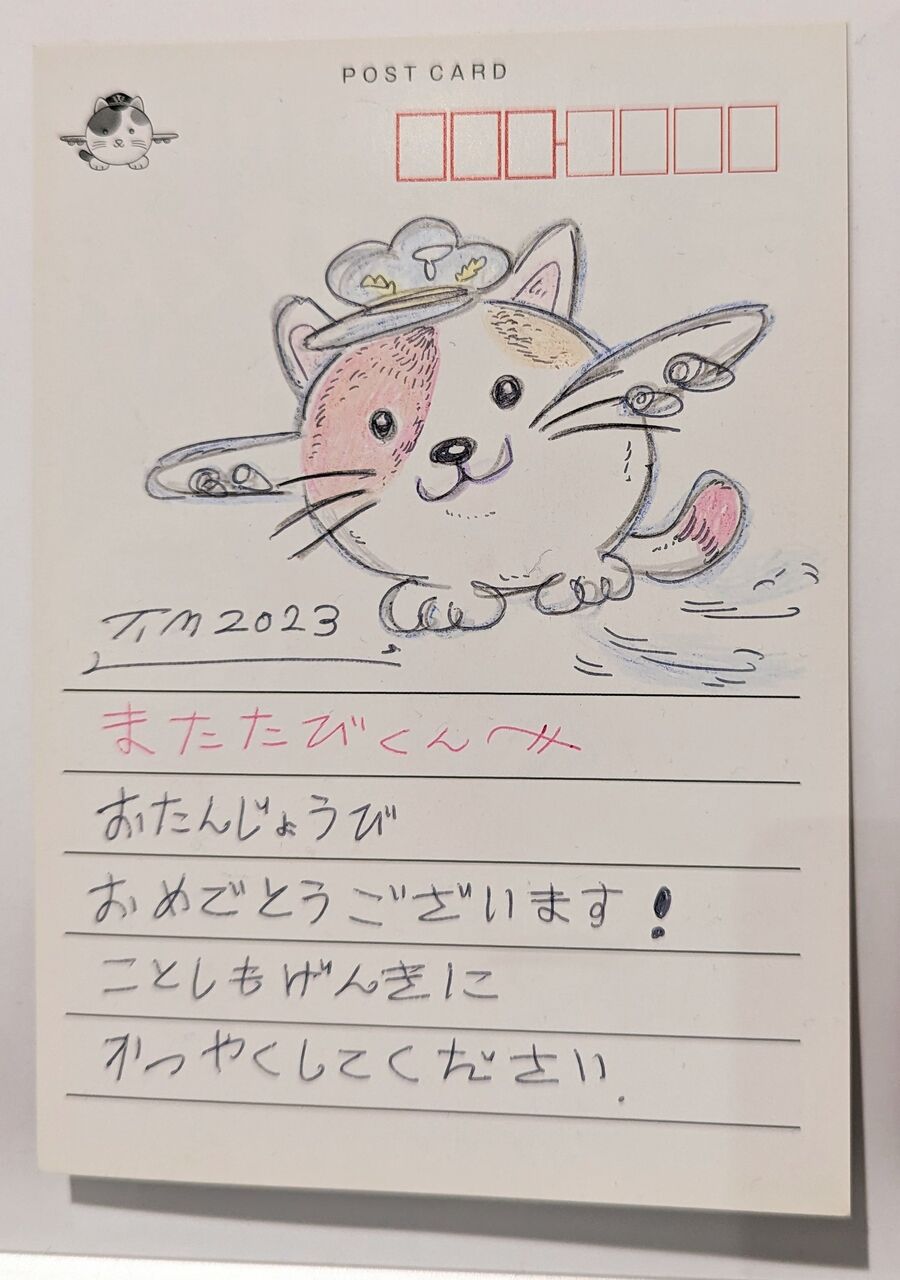 POST CARD
TM 2023
またたびくんへ
おたんじょうび
おめでとうございます!
ことしもげんきに
かつやくしてください.